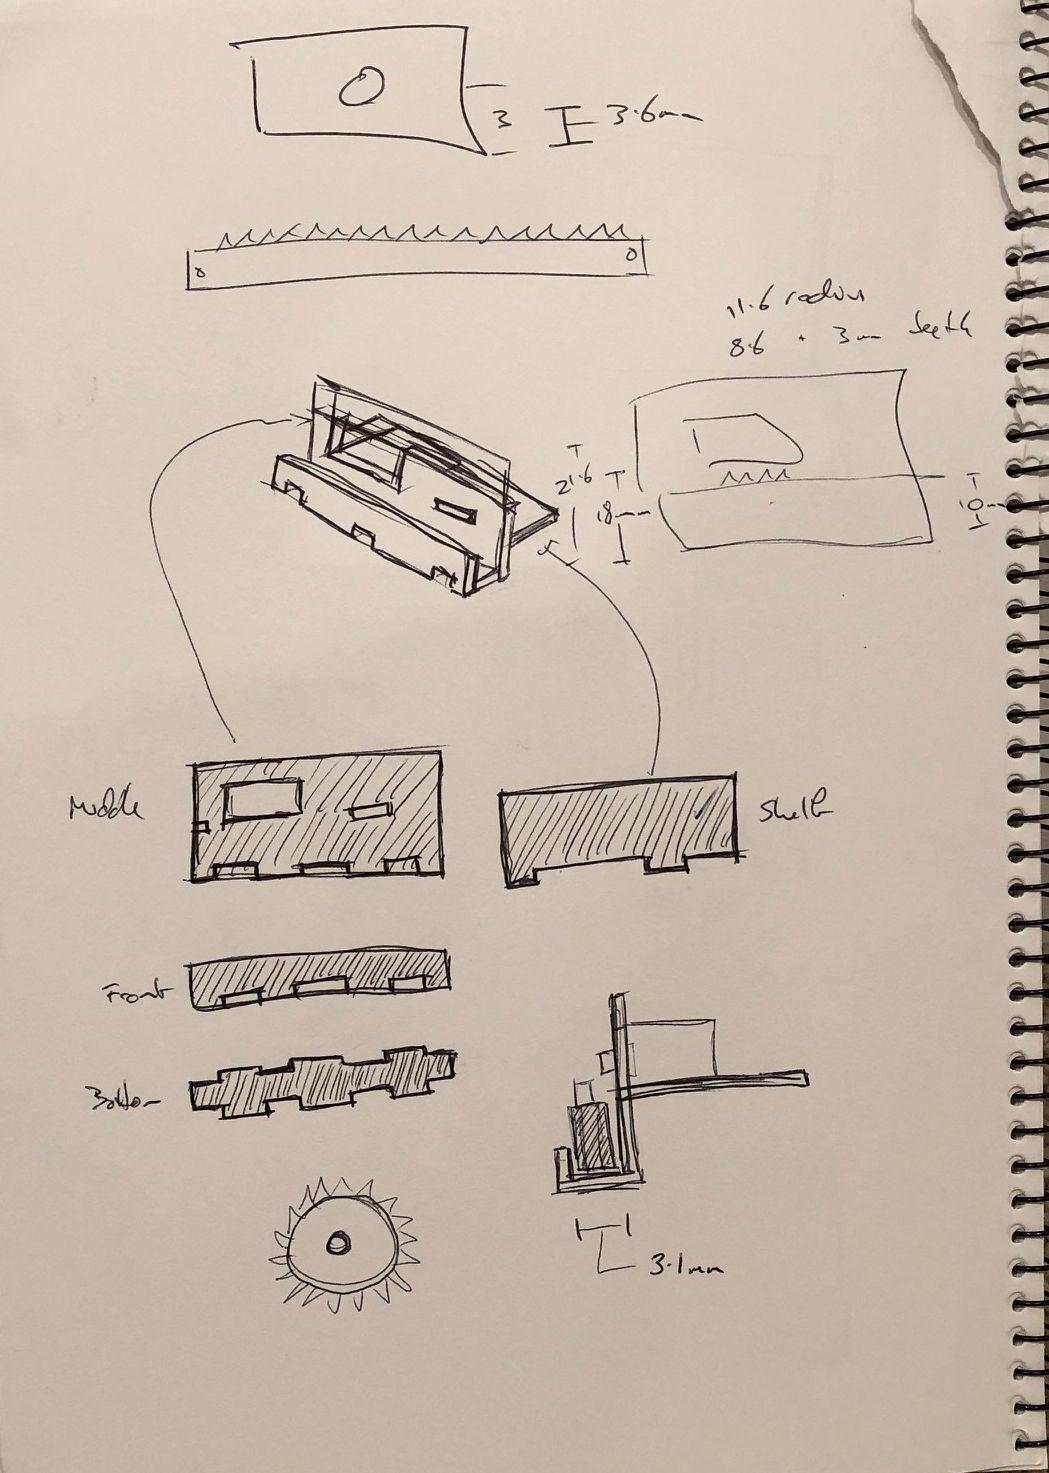 3
3.6mm
11.6 radius
8.6 + 3mm teeth
21.6
18mm
10mm
Middle
Shelf
Front
Bottom
3.1mm